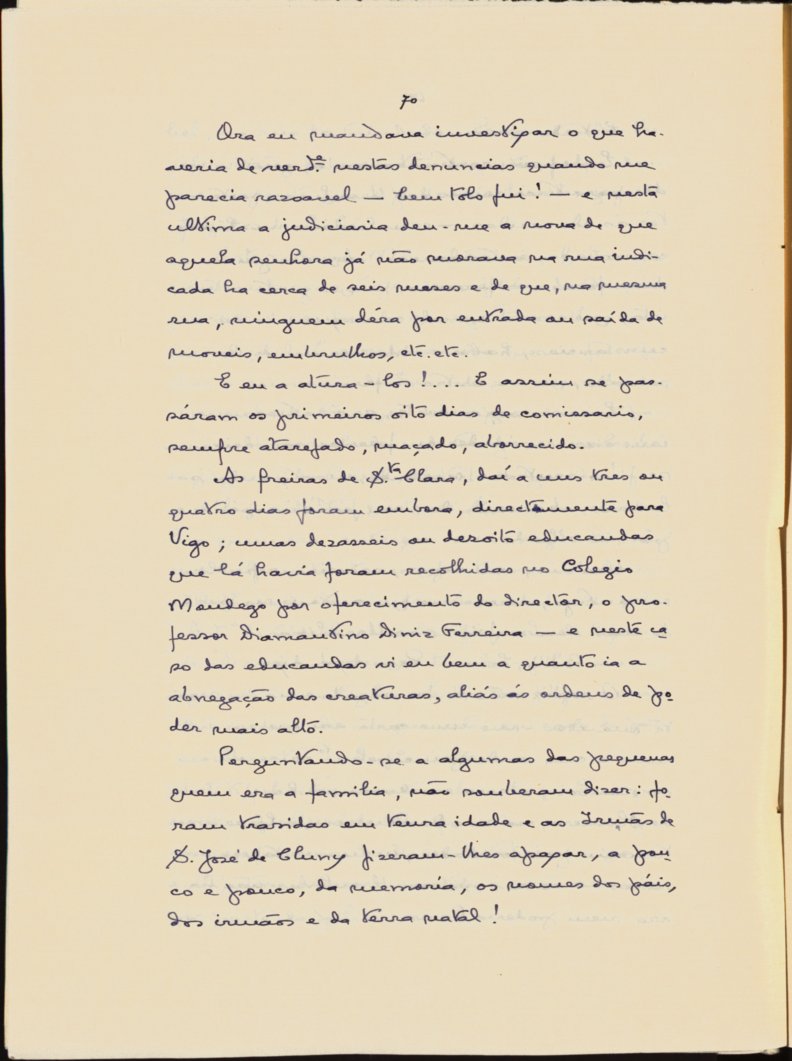 70
Ora eu mandava investigar o que ha-
veria de verd.e nestas denuncias quando me
parecia razoavel — bem tolo fui! — e nesta
ultima a judiciaria deu-me a nova de que
aquela senhora já não morava na rua indi-
cada ha cerca de seis meses e de que, na mesma
rua, ninguem déra por entrada ou saída de
moveis, embrulhos, etc. etc.
E eu a atura-los!... E assim se pas-
sáram os primeiros oito dias de comissario,
sempre atarefado, maçado, aborrecido.
As freiras de S.ta Clara, daí a uns tres ou
quatro dias foram embora, directamente para
Vigo; umas dezasseis ou dezoito educandas
que lá havia foram recolhidas no Colegio
Mondego por oferecimento do director, o pro-
fessor Diamantino Diniz Ferreira — e neste ca-
so das educandas vi eu bem a quanto ia a
abnegação das creaturas, aliás ás ordens de po-
der mais alto.
Perguntando-se a algumas das pequenas
quem era a familia, não souberam dizer: fo-
ram trasidas em tenra idade e as Irmãs de
S. José de Cluny fizeram-lhes apagar, a pou-
co e pouco, da memoria, os nomes dos páis,
dos irmãos e da terra natal!